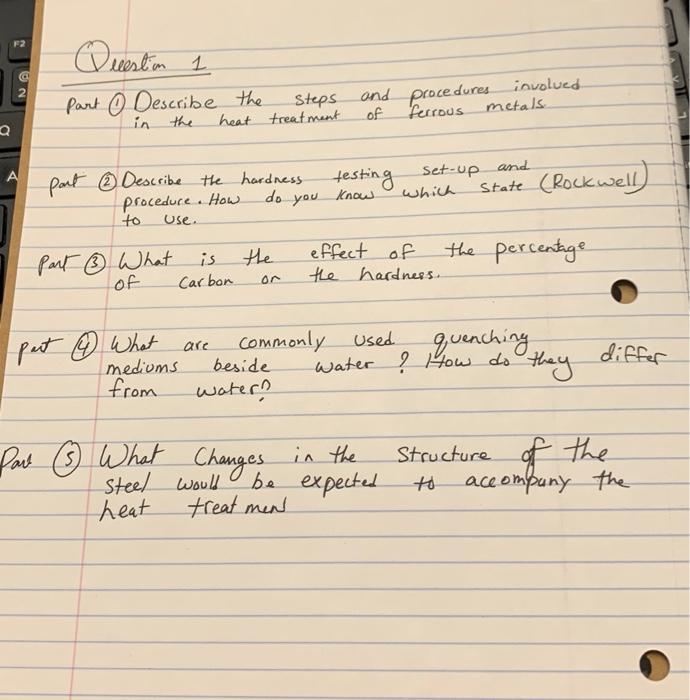 F2
@
2
Q
A
Question 1
Part ① Describe the steps and procedures involved
in the heat treatment of ferrous metals.
part ② Describe the hardness testing set-up and
procedure. How do you know which state (Rockwell)
to use.
part ③ What is the effect of the percentage
of carbon on the hardness.
part ④ What are commonly used quenching
mediums beside water? How do they differ
from water?
Part ⑤ What Changes in the structure of the
steel would be expected to accompany the
heat treatment